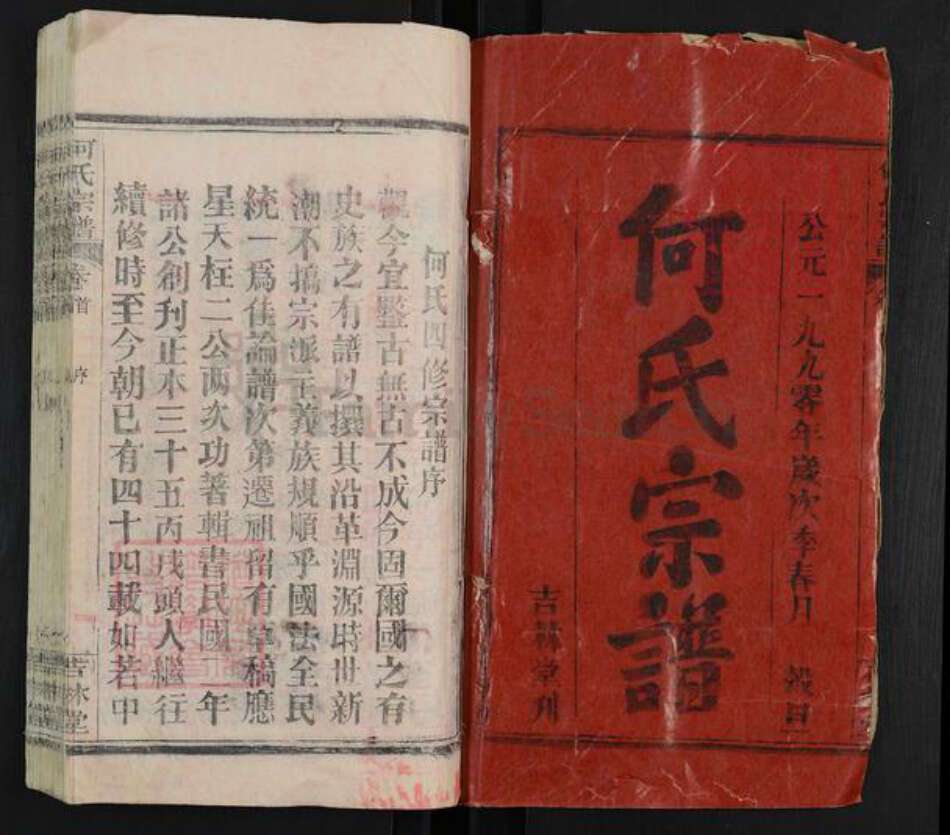 公元一九九零年歲次季春月 穀旦
何氏宗譜
吉林堂刊
何氏四修宗譜序
觀今宜鑒古無古不成今固爾國之有
史族之有譜以撰其沿革淵源時世新
潮不搞宗派主義族規順乎國法全民
統一為佳論譜次第遷祖留有草稿應
星天柱二公两次功著輯書民國二年
諸公創刊正本三十五丙戌頭人繼往
續修時至今朝已有四十四載如若中
何氏宗譜 卷首 序 吉林堂